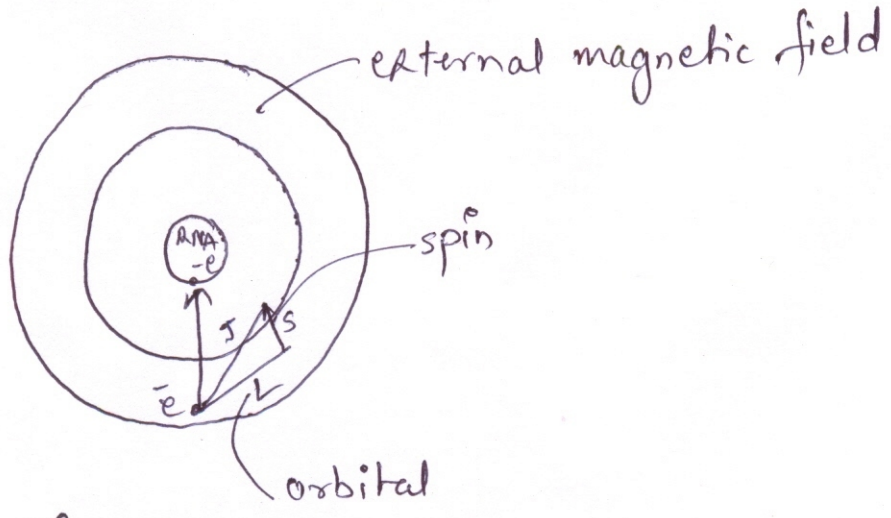 external magnetic field
RNA
-e
spin
J
S
-e
L
orbital